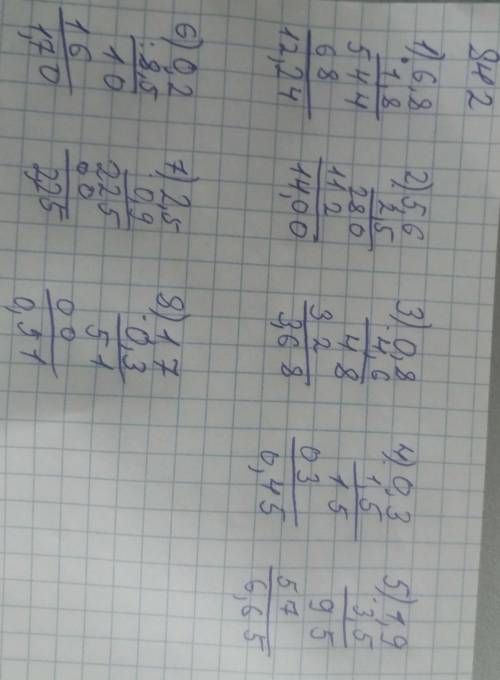 942
1) 6,8
·1,8
544
68
12,24
2) 5,6
2,5
280
112
14,00
3) 0,8
·4,6
48
32
3,68
4) 0,3
1,5
15
03
0,45
5) 1,9
·3,5
95
57
6,65
6) 0,2
·8,5
10
16
1,70
7) 2,5
0,9
225
00
2,25
8) 1 7
·0,3
51
00
0,51